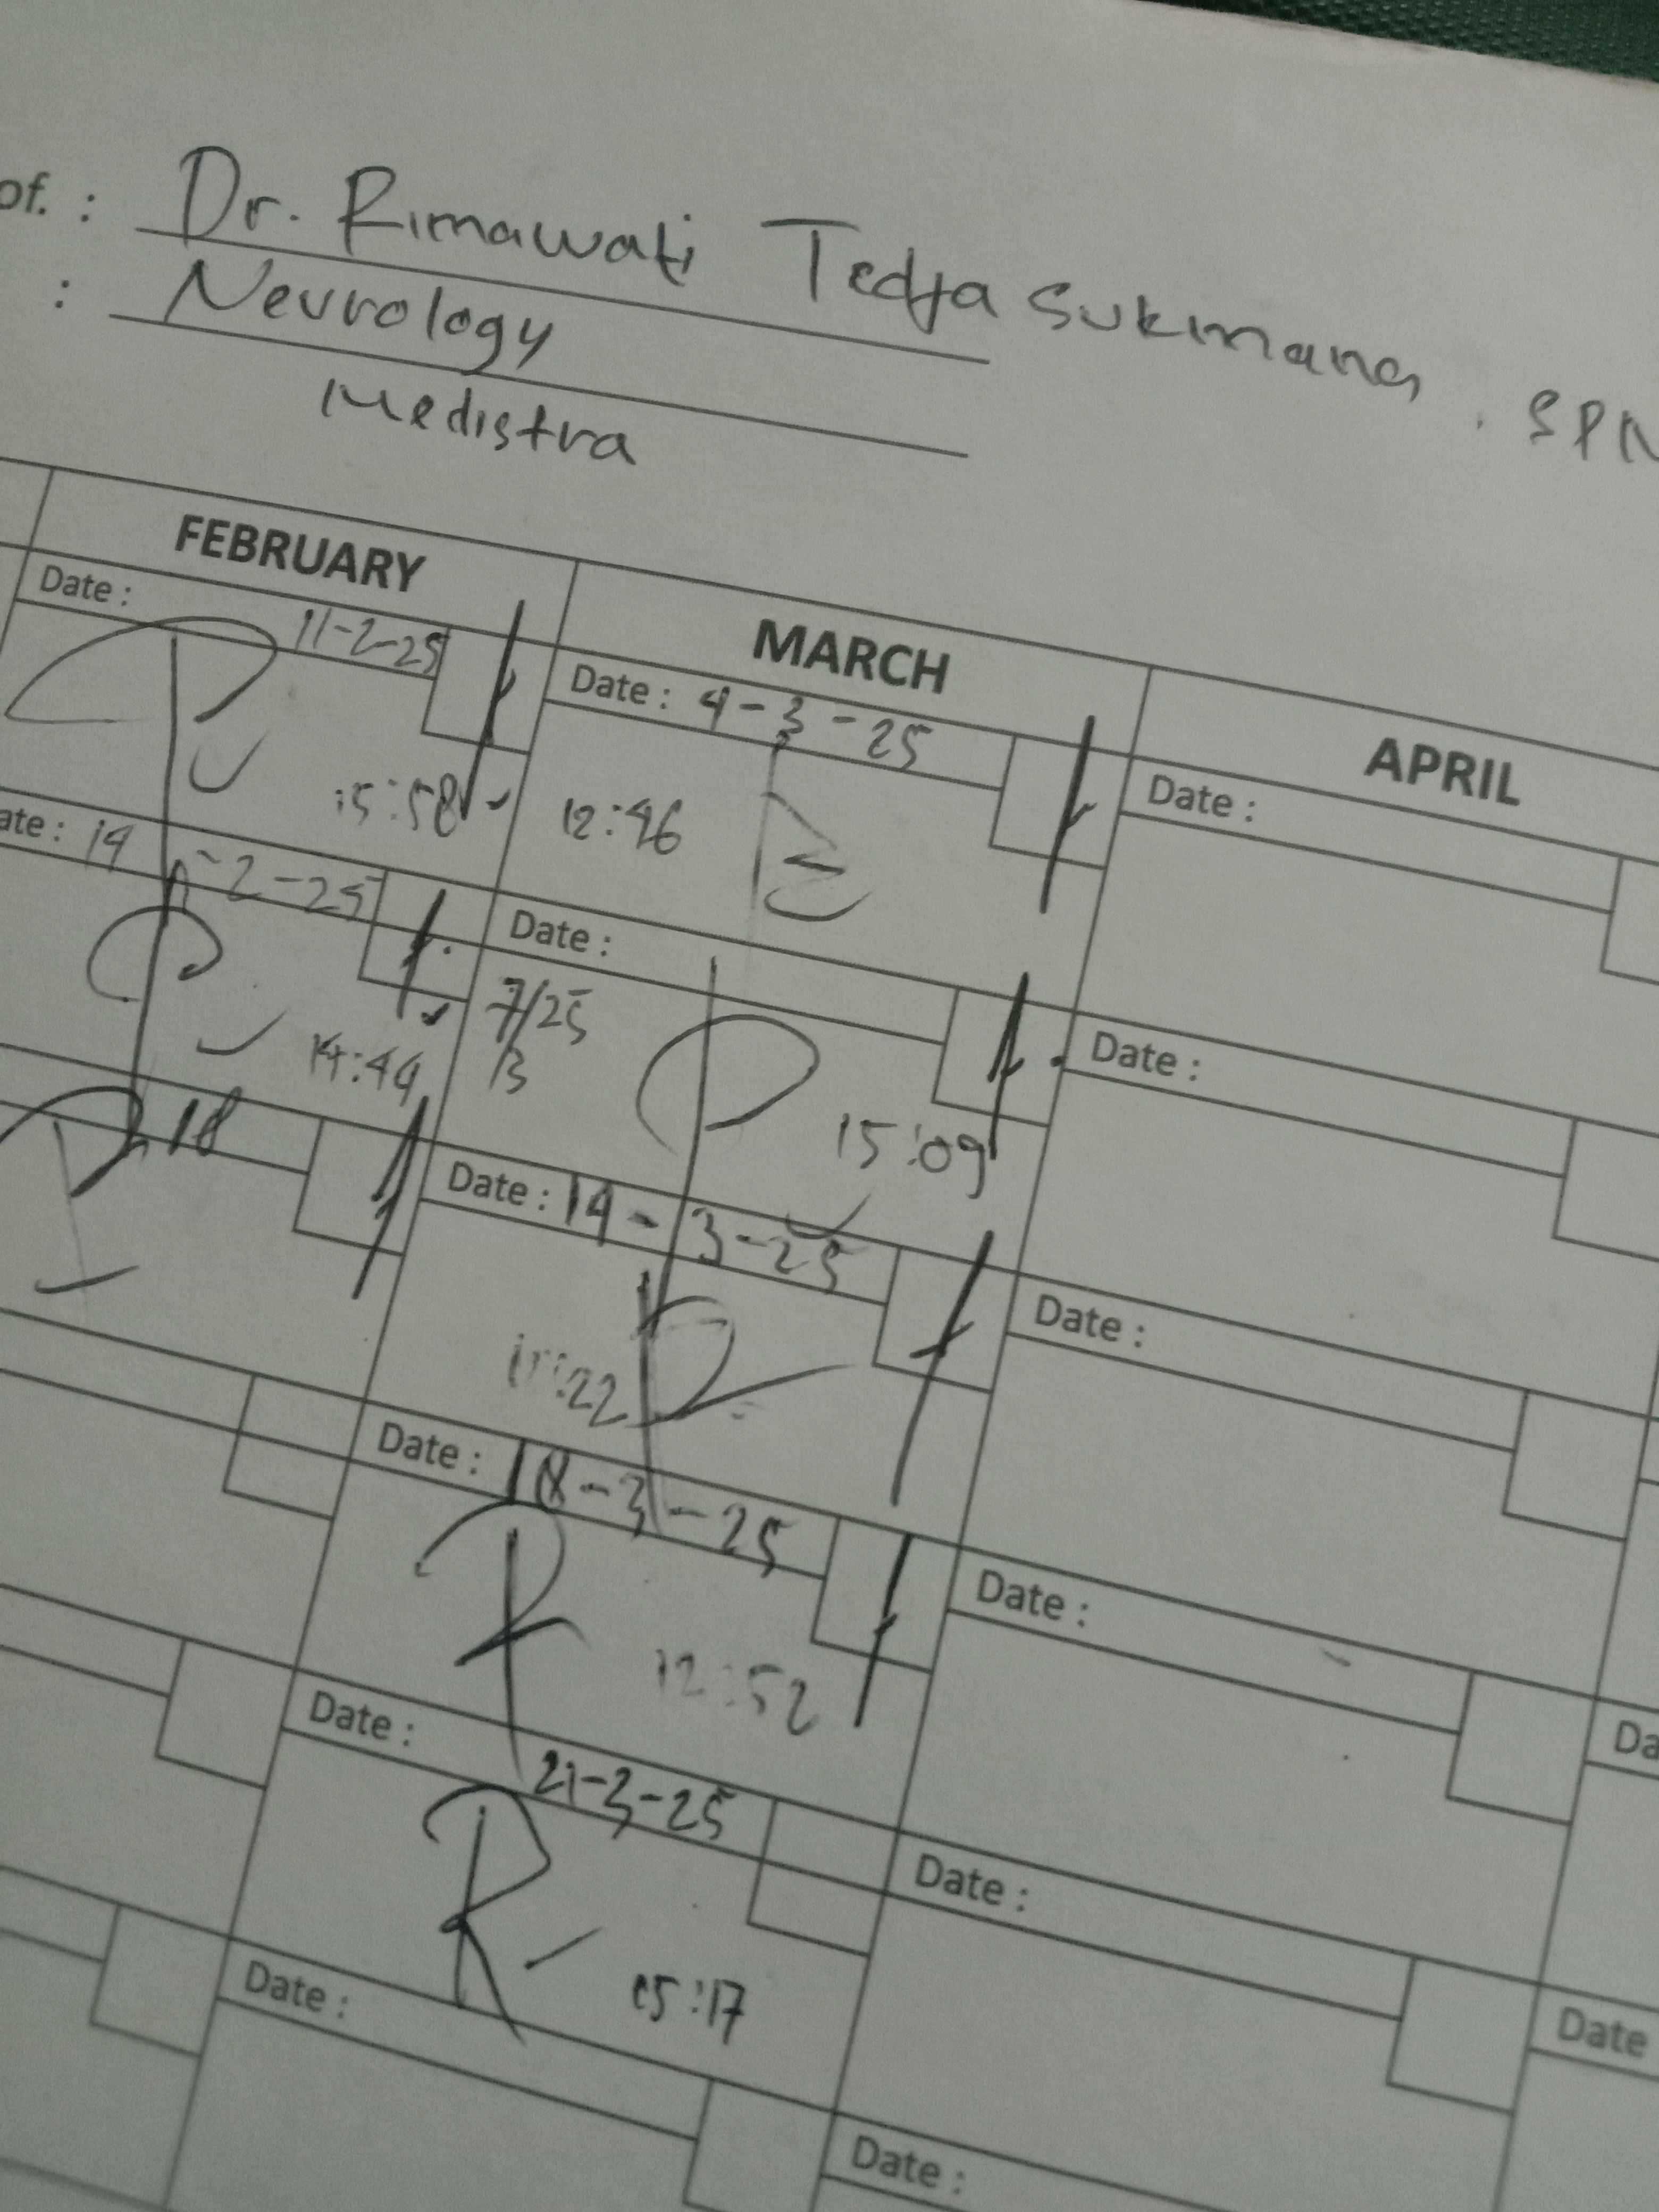 of. : Dr. Rimawati Tedjasukmana, SPN
: Neurology
Medistra
FEBRUARY
MARCH
APRIL
Date : 11-2-25
15:58
Date : 4-3-25
12:46
Date :
ate : 14-2-25
14:44
Date :
7/25
/3
15:09
Date :
18
Date : 14-3-25
:22
Date :
Date : 18-3-25
12:52
Date :
Date : 21-3-25
15:17
Date :
Da
Date :
Date :
Date